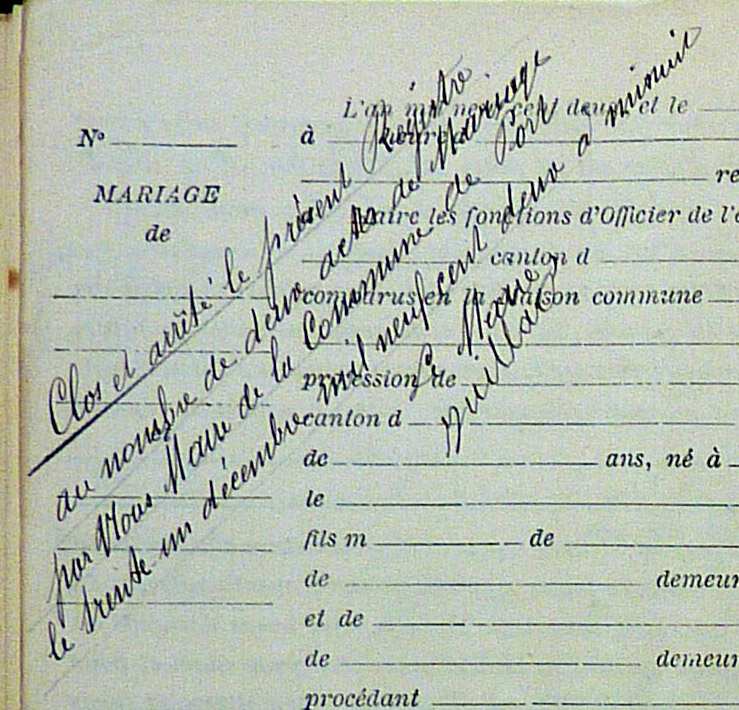 L'an mil neuf cent deux et le
N°
à heure
MARIAGE
de
re
Maire les fonctions d'Officier de l'é
canton d
comparus en la maison commune
profession de
canton d
de ans, né à
le
fils m de
de demeur
et de
de demeur
procédant
Clos et arrêté le présent Registre
au nombre de deux actes de Mariage
par Nous Maire de la Commune de Port
le trente un décembre mil neuf cent deux à minuit
Le Maire